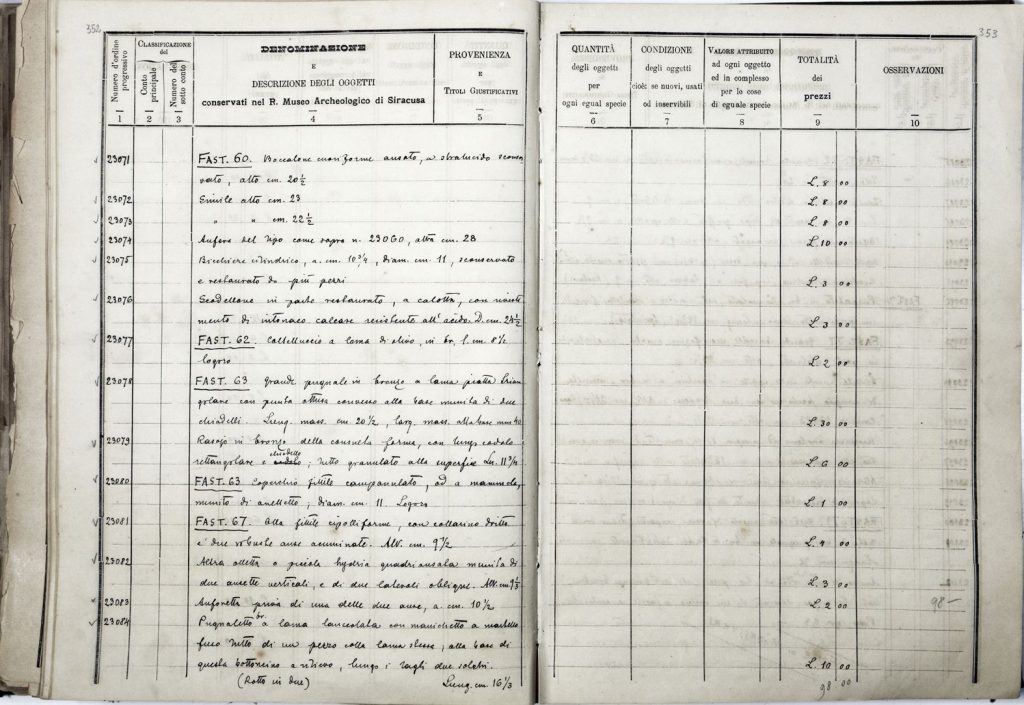 352
Numero d'ordine progressivo
CLASSIFICAZIONE del
Conto principale
Numero del sotto conto
DENOMINAZIONE
E
DESCRIZIONE DEGLI OGGETTI
conservati nel R. Museo Archeologico di Siracusa
PROVENIENZA
E
TITOLI GIUSTIFICATIVI
1 2 3 4 5
23071 FAST. 60. Boccalone cuoriforme ansato, a stralucido sconser
vato, alto cm. 20½
23072 Simile alto cm. 23
23073 " " cm. 22½
23074 Anfora del tipo come sopra n. 23060, alta cm. 28
23075 Bicchiere cilindrico, a. cm. 10¾, diam. cm. 11, sconservato
e restaurato da più pezzi
23076 Scodellone in parte restaurato, a calotta, con rivesti
mento di intonaco calcare resistente all'acido. D. cm. 24½
23077 FAST. 62. Coltelluccio a lama di olivo, in br. l. cm. 8½
logoro
23078 FAST. 63 Grande pugnale in bronzo a lama piatta trian
golare con punta ottusa convesso alla base munita di due
chiodelli. Lung. mass. cm. 20½, larg. mass. alla base mm 40
23079 Rasojo in bronzo della consueta forma, con lungo codolo
rettangolare e chiodetto; tutto granulato alla superficie Lu. 11¾
23080 FAST. 63 Coperchio fittile campanulato, ad a mammella,
munito di anelletto; diam. cm. 11. Logoro
23081 FAST. 67. Olla fittile cipolliforme, con collarino dritto
e due robuste anse acuminate. Alt. cm. 9½
23082 Altra olletta o piccola hydria quadriansata munita di
due ansette verticali, e di due laterali oblique. Alt. cm. 9⅓
23083 Anforetta priva di una delle due anse, a. cm. 10½
23084 Pugnaletto br. a lama lanceolata con manichetto a martello
fuso tutto di un pezzo colla lama stessa; alla base di
questa bottoncino a rilievo, lungo i tagli due solchi.
(Rotto in due) Lung. cm. 16⅓
353
QUANTITÀ
degli oggetti
per
ogni egual specie
CONDIZIONE
degli oggetti
cioè: se nuovi, usati
od inservibili
VALORE ATTRIBUITO
ad ogni oggetto
ed in complesso
per le cose
di eguale specie
TOTALITÀ
dei
prezzi
OSSERVAZIONI
6 7 8 9 10
L. 8 00
L. 8 00
L. 8 00
L. 10 00
L. 3 00
L. 3 00
L. 2 00
L. 30 00
L. 6 00
L. 1 00
L. 4 00
L. 3 00
L. 2 00 98–
L. 10 00
98 00